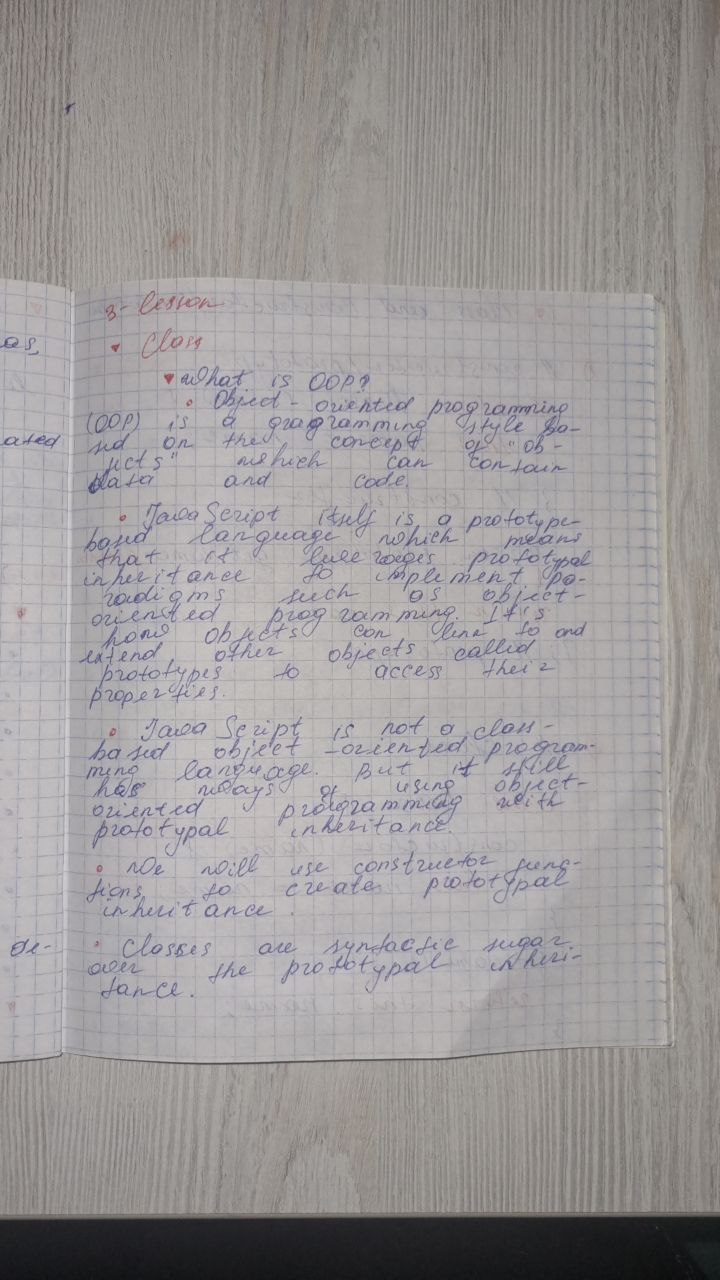 as,
ated
de-
3- lesson
Class
What is OOP?
Object - oriented programming
(OOP) is a programming style ba-
sed on the concept of "ob-
jects" which can contain
data and code.
JavaScript itself is a prototype-
based language which means
that it leverages prototypal
inheritance to implement pa-
radigms such as object-
oriented programming. It is
how objects can link to and
extend other objects called
prototypes to access their
properties.
JavaScript is not a class-
based object -oriented program-
ming language. But it still
has ways of using object-
oriented programming with
prototypal inheritance.
We will use constructor func-
tions to create prototypal
inheritance.
Classes are syntactic sugar
over the prototypal inheri-
tance.